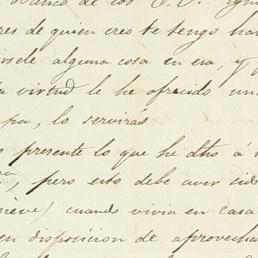 de los
res de quien creo te tengo ha
alguna cosa en esa, y
virtud le he ofrecido un
pa, lo servirás
presente lo que he dho á
, pero esto debe aver sid
nève) cuando vivia en casa
en disposicion de aprovecha